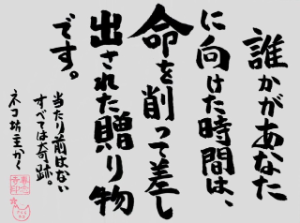 誰かがあなた
に向けた時間は、
命を削って差し
出された贈り物
です。
当たり前はない
すべては奇跡。
ネコ坊主かく